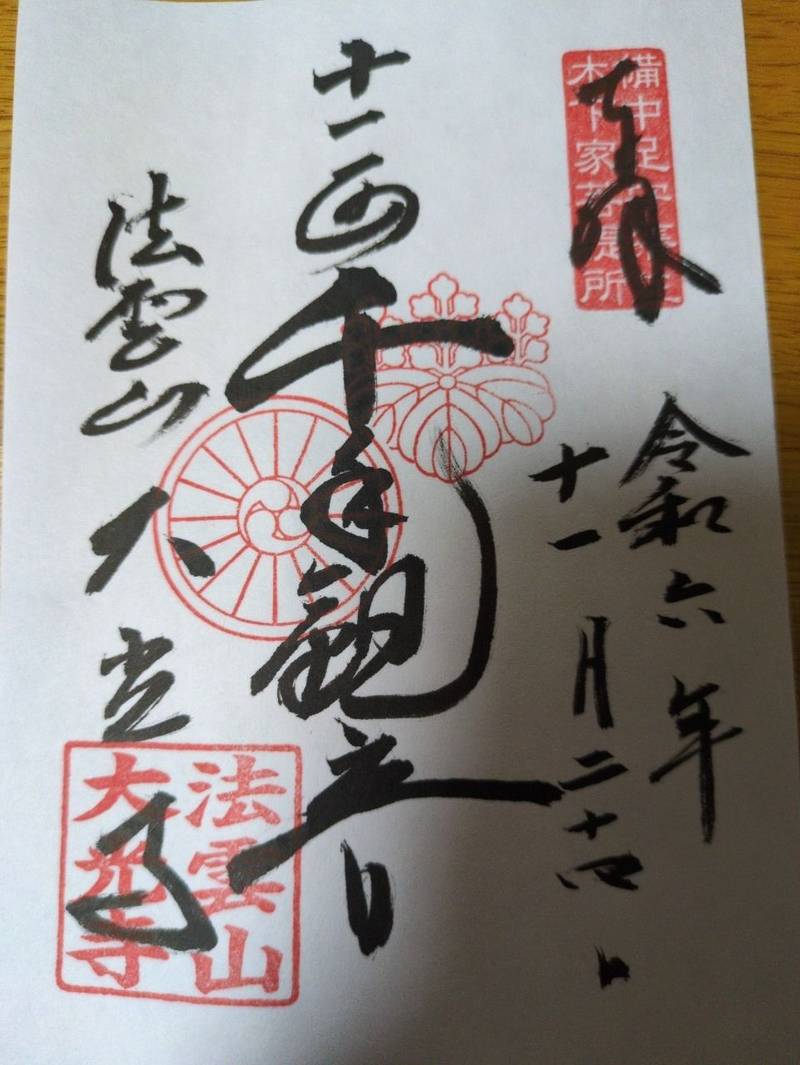 奉拝
備中足守藩主
木下家菩提所
令和六年
十一月二十四日
十一面千手観音
法雲山 大光寺
法雲山
大光寺